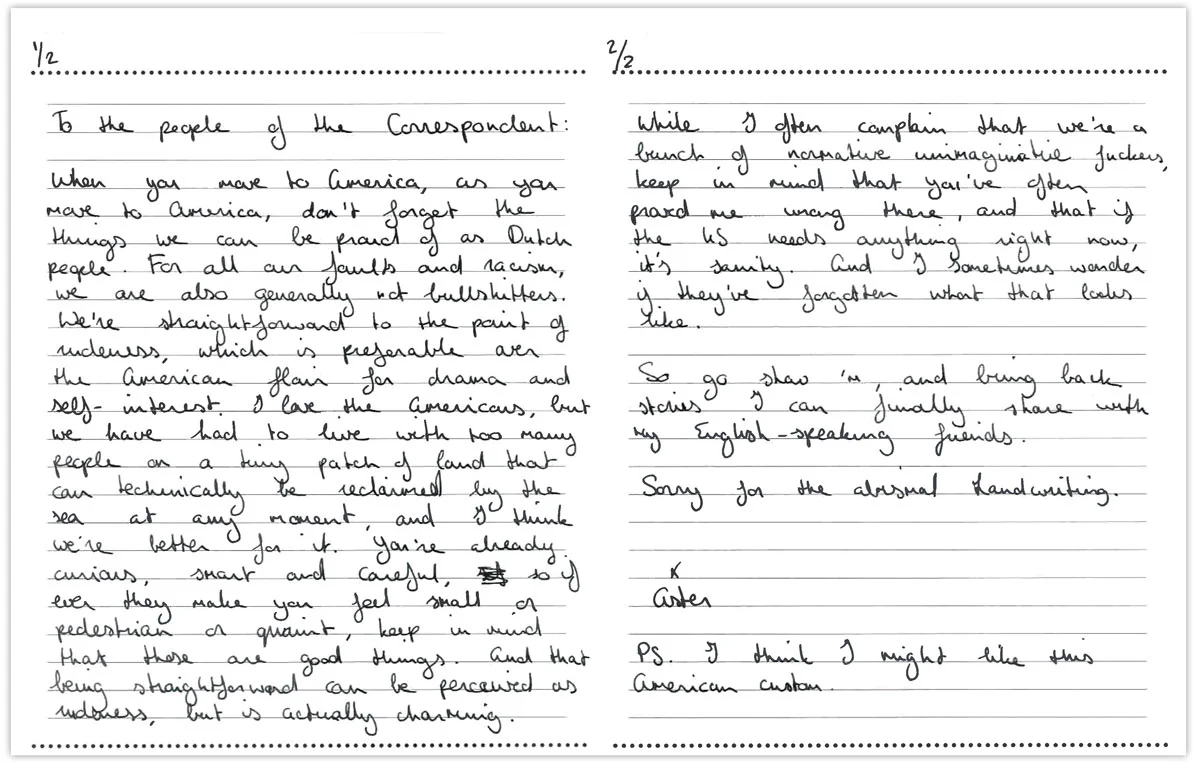 1/2
To the people of the Correspondent:
When you move to America, as you
move to America, don't forget the
things we can be proud of as Dutch
people. For all our faults and racism,
we are also generally not bullshitters.
We're straightforward to the point of
rudeness, which is preferable over
the American flair for drama and
self-interest. I love the Americans, but
we have had to live with too many
people on a tiny patch of land that
can techinically be reclaimed by the
sea at any moment, and I think
we're better for it. You're already
curious, smart and careful, so if
ever they make you feel small or
pedestrian or quaint, keep in mind
that those are good things. And that
being straightforward can be perceived as
rudeness, but is actually charming.
2/2
While I often complain that we're a
bunch of normative unimaginative fuckers,
keep in mind that you've often
proved me wrong there, and that if
the US needs anything right now,
it's sanity. And I sometimes wonder
if they've forgotten what that looks
like.
So go show 'm, and bring back
stories I can finally share with
my English-speaking friends.
Sorry for the abismal handwriting.
x
Aster
PS. I think I might like this
American custom.